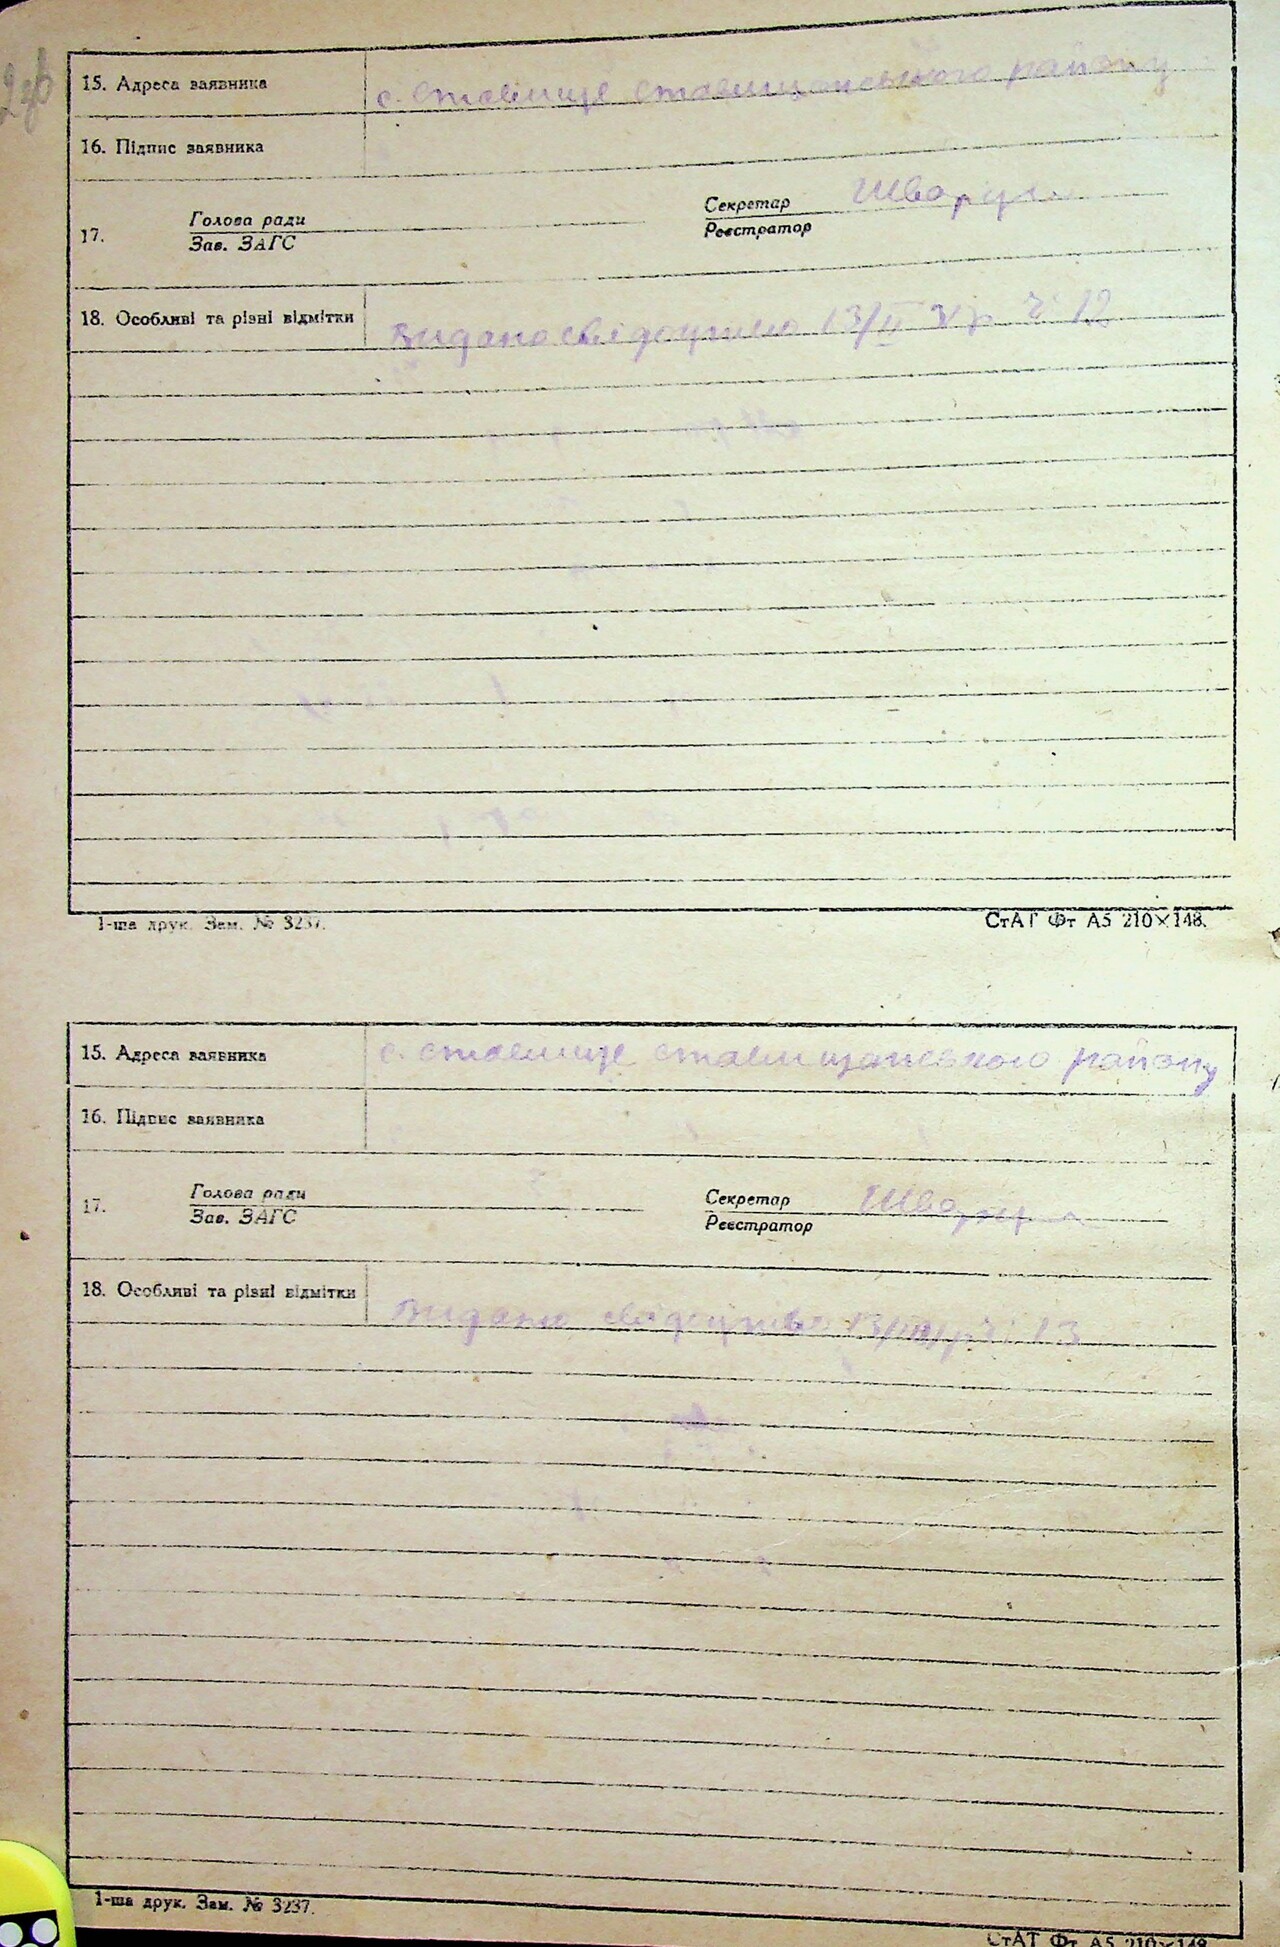 15. Адреса заявника с. Ставище Ставищанського району
16. Підпис заявника
17. Голова ради Секретар
Зав. ЗАГС Реєстратор
18. Особливі та різні відмітки Видано свідоцтво 13/II р. 12
1-ша друк. Зам. № 3237. СтАТ Фт А5 210×148.
15. Адреса заявника с. Ставище Ставищанського району
16. Підпис заявника
17. Голова ради Секретар
Зав. ЗАГС Реєстратор
18. Особливі та різні відмітки Видано свідоцтво 13
1-ша друк. Зам. № 3237.
СтАТ Фт А5 210×148